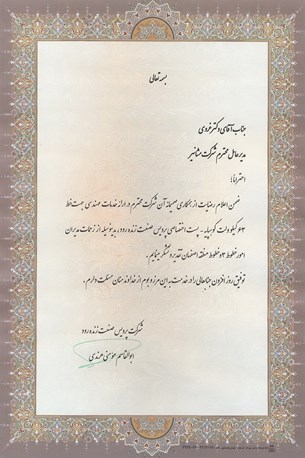 بسمه تعالی
جناب آقای دکتر خردی
مدیرعامل محترم شرکت مشانیر
احتراماً؛
ضمن اعلام رضایت از همکاری صمیمانه آن شرکت محترم در ارائه خدمات مهندسی جهت خط
۶۳ کیلو ولت کوهپایه - پست اختصاصی پردیس صنعت زنده رود، بدینوسیله از زحمات مدیران
امور خطوط ۶۳ و خطوط منطقه اصفهان تقدیر و تشکر مینمایم.
توفیق روز افزون جنابعالی را در خدمت به این مرز و بوم از خداوند منان مسئلت دارم.
شرکت پردیس صنعت زنده رود
ابوالقاسم مؤمنی هرندی